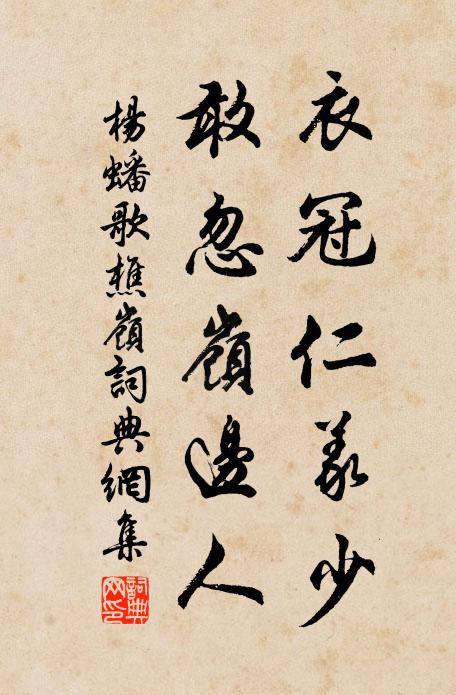 衣冠仁義少
敢忽嶺邊人
楊蟠歌樵嶺詞典網集
詞典網印